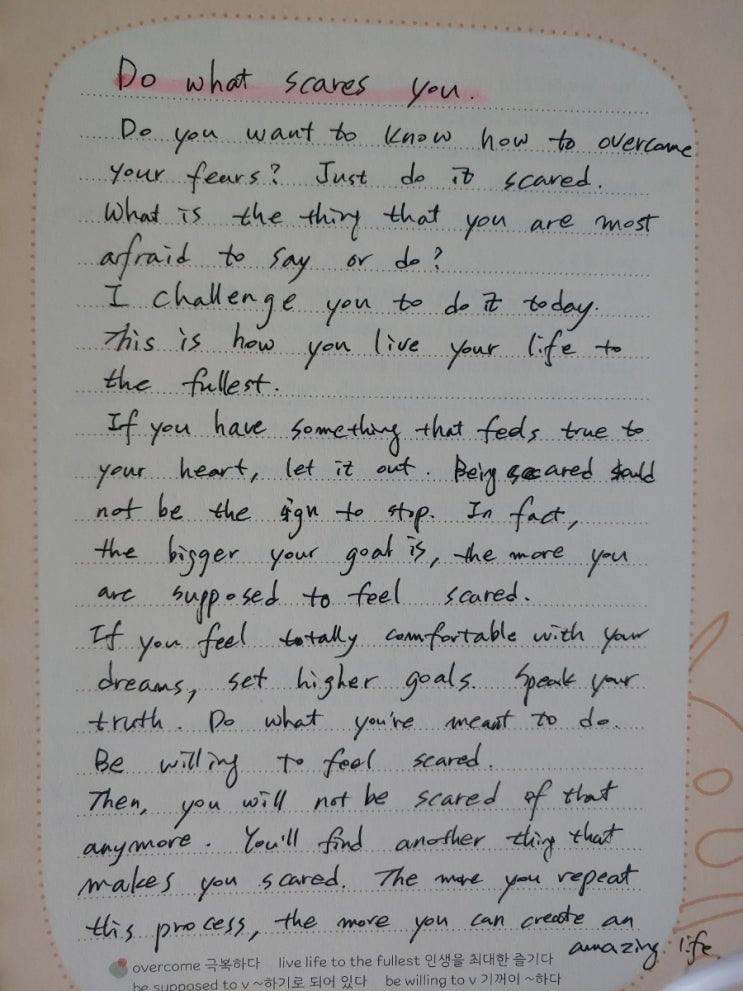 Do what scares you.
Do you want to know how to overcome
your fears? Just do it scared.
What is the thing that you are most
afraid to say or do?
I challenge you to do it today.
This is how you live your life to
the fullest.
If you have something that feels true to
your heart, let it out. Being scared should
not be the sign to stop. In fact,
the bigger your goal is, the more you
are supposed to feel scared.
If you feel totally comfortable with your
dreams, set higher goals. Speak your
truth. Do what you're meant to do.
Be willing to feel scared.
Then, you will not be scared of that
anymore. You'll find another thing that
makes you scared. The more you repeat
this process, the more you can create an
amazing life.
overcome 극복하다 live life to the fullest 인생을 최대한 즐기다
be supposed to v ~하기로 되어 있다 be willing to v 기꺼이 ~하다